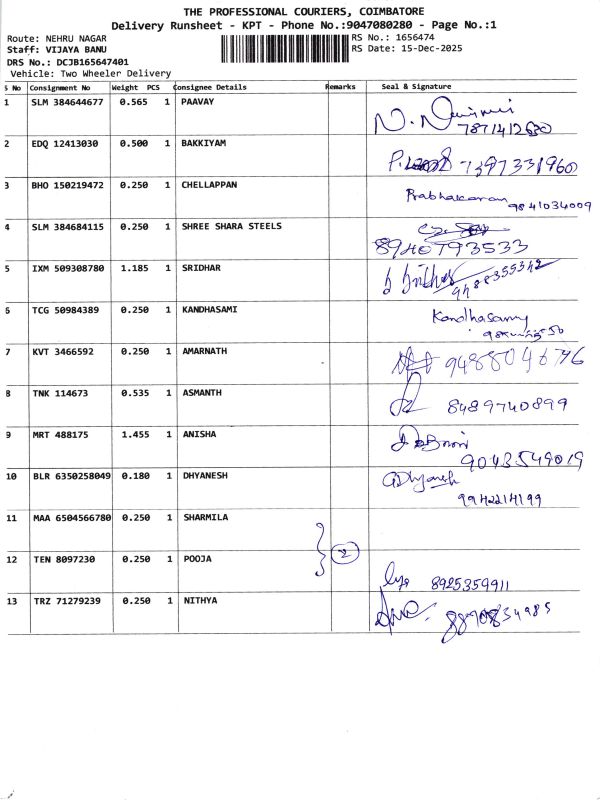 THE PROFESSIONAL COURIERS, COIMBATORE
Delivery Runsheet - KPT - Phone No.:9047080280 - Page No.:1
Route: NEHRU NAGAR RS No.: 1656474
Staff: VIJAYA BANU RS Date: 15-Dec-2025
DRS No.: DCJB165647401
Vehicle: Two Wheeler Delivery
S No Consignment No Weight PCS Consignee Details Remarks Seal & Signature
1 SLM 384644677 0.565 1 PAAVAY
7871412630
2 EDQ 12413030 0.500 1 BAKKIYAM
3 BHO 150219472 0.250 1 CHELLAPPAN Prabhakaran 9841034009
4 SLM 384684115 0.250 1 SHREE SHARA STEELS
8940793533
5 IXM 509308780 1.185 1 SRIDHAR
9488355342
6 TCG 50984389 0.250 1 KANDHASAMI Kandhasamy
7 KVT 3466592 0.250 1 AMARNATH 9488046796
8 TNK 114673 0.535 1 ASMANTH 8489740899
9 MRT 488175 1.455 1 ANISHA
9043549019
10 BLR 6350258049 0.180 1 DHYANESH Dhyanesh
9942214199
11 MAA 6504566780 0.250 1 SHARMILA
12 TEN 8097230 0.250 1 POOJA 2
8925359911
13 TRZ 71279239 0.250 1 NITHYA
8890834985